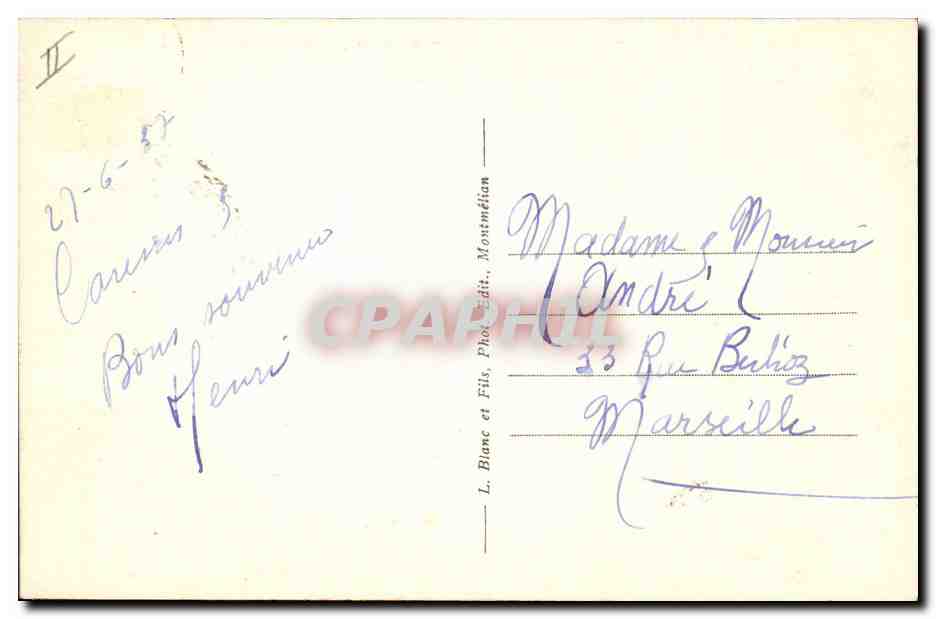 II
27-6-37
Bons souvenirs
Henri
L. Blanc et Fils, Phot. Edit., Montmélian
CPAPHIL
Madame & Monsieur
André
33 Rue Berlioz
Marseille